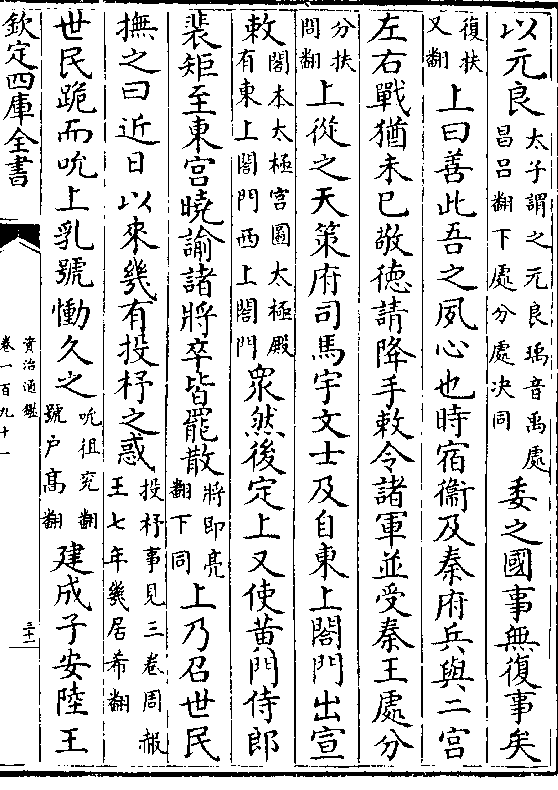 以元良太子謂之元良瑀音禹處昌吕翻下處分處决同委之國事無復事矣
復扶又翻上曰善此吾之夙心也時宿衞及秦府兵與二宫
左右戰猶未已敬德請降手敕令諸軍並受秦王處分
分扶問翻上從之天策府司馬宇文士及自東上閤門出宣
敕閤本太極宫圖太極殿有東上閤門西上閤門衆然後定上又使黄門侍郎
裴矩至東宫曉諭諸將卒皆罷散將即亮翻下同上乃召世民
撫之曰近日以來幾有投杼之惑投杼事見三卷周赧王七年幾居希翻
世民跪而吮上乳號慟久之吮徂兖翻號户髙翻建成子安陸王
欽定四庫全書
資治通鑑
卷一百九十一
三十二